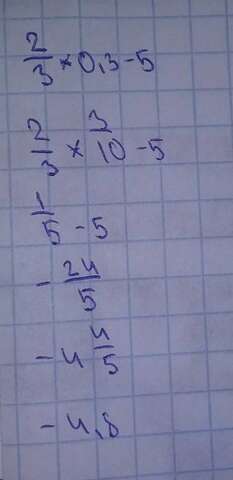 2/3 × 0,3 - 5
2/3 × 3/10 - 5
1/5 - 5
- 24/5
- 4 4/5
- 4,8